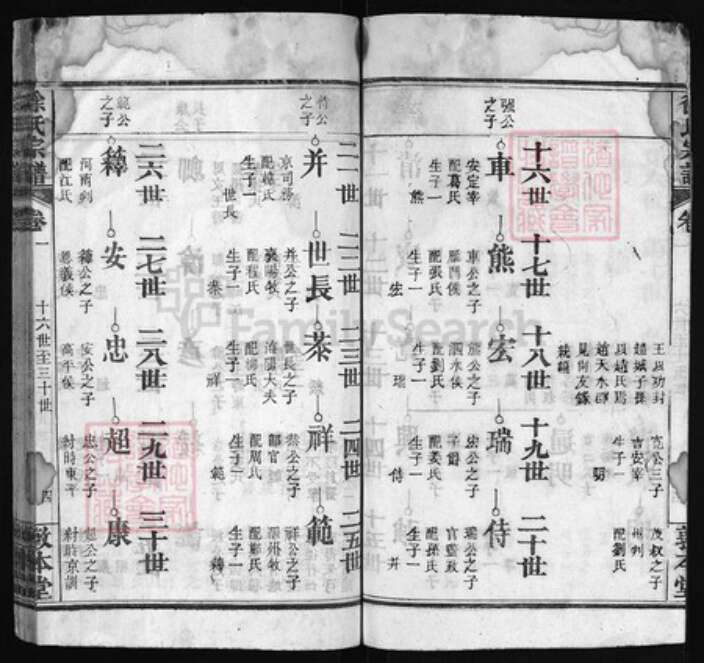 王以功封
趙城子孫
以趙氏焉
寬公三子
吉安宰
生子一
茂叔之子
州判
配劉氏
十六世 十七世 十八世 十九世 二十世
強公之子
車
安定宰
配葛氏
生子一
熊
熊
車公之子
雁門侯
配張氏
生子一
宏
宏
熊公之子
泗水侯
配劉氏
生子一
瑞
瑞
宏公之子
子爵
配姜氏
生子一
侍
侍
瑞公之子
官監政
配孫氏
生子一
并
二一世 二二世 二三世 二四世 二五世
侍公之子
并
京司務
配韓氏
生子一
世長
世長
并公之子
襄陽牧
配程氏
生子一
泰
泰
世長之子
洛陽大夫
生子一
祥
祥
泰公之子
郎官
配周氏
生子一
範
範
祥公之子
深州牧
配鄭氏
生子一
釋
二六世 二七世 二八世 二九世 三十世
範公之子
釋
河南判
配江氏
安
釋公之子
恩義侯
忠
安公之子
高平侯
超
忠公之子
封時東平
康
超公之子
封時京都
徐氏宗譜
卷一
十六世至三十世
四
敦本堂
FamilySearch